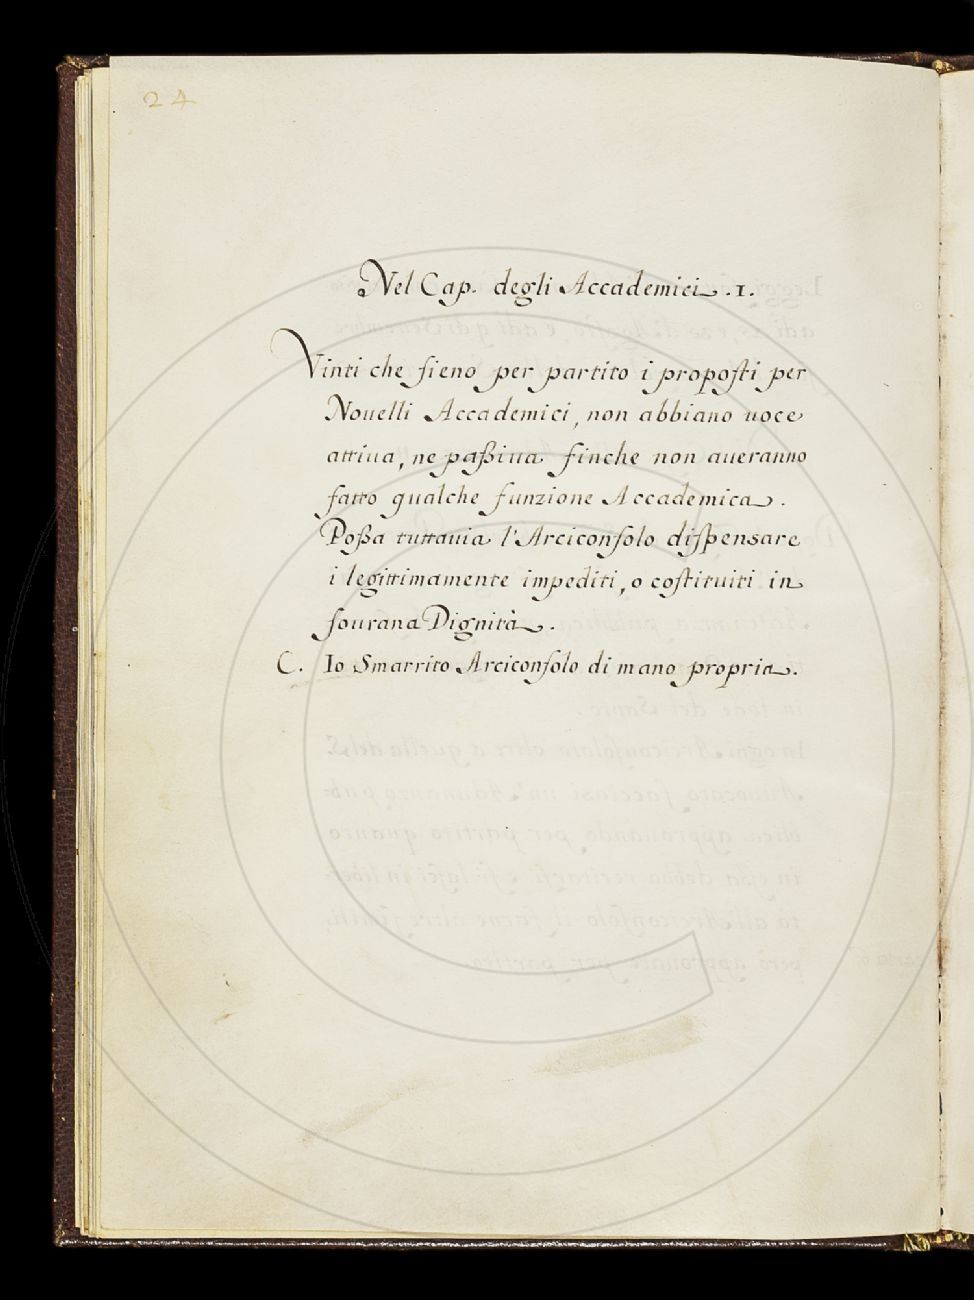 24
Nel Cap. degli Accademici .1.
Vinti che sieno per partito i proposti per
Nouelli Accademici, non abbiano uoce
attiua, ne paßiua finche non aueranno
fatto qualche funzione Accademica.
Poßa tuttauia l'Arciconsolo dispensare
i legittimamente impediti, o costituiti in
sourana Dignità.
C. Io Smarrito Arciconsolo di mano propria.